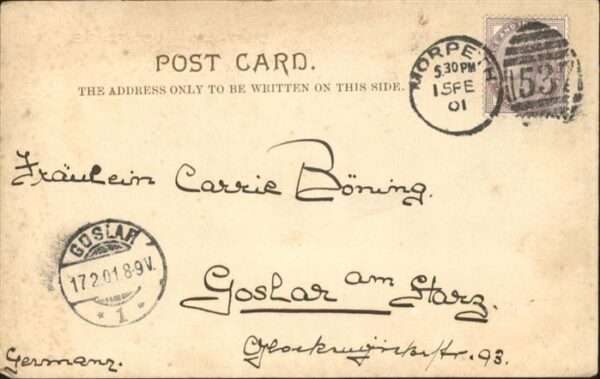 POST CARD.
THE ADDRESS ONLY TO BE WRITTEN ON THIS SIDE.
MORPETH
5.30 PM
15 FE
01
53
Fräulein Carrie Böning.
GOSLAR
17.2.01.8-9V.
* 1 *
Goslar am Harz.
93.
Germany.